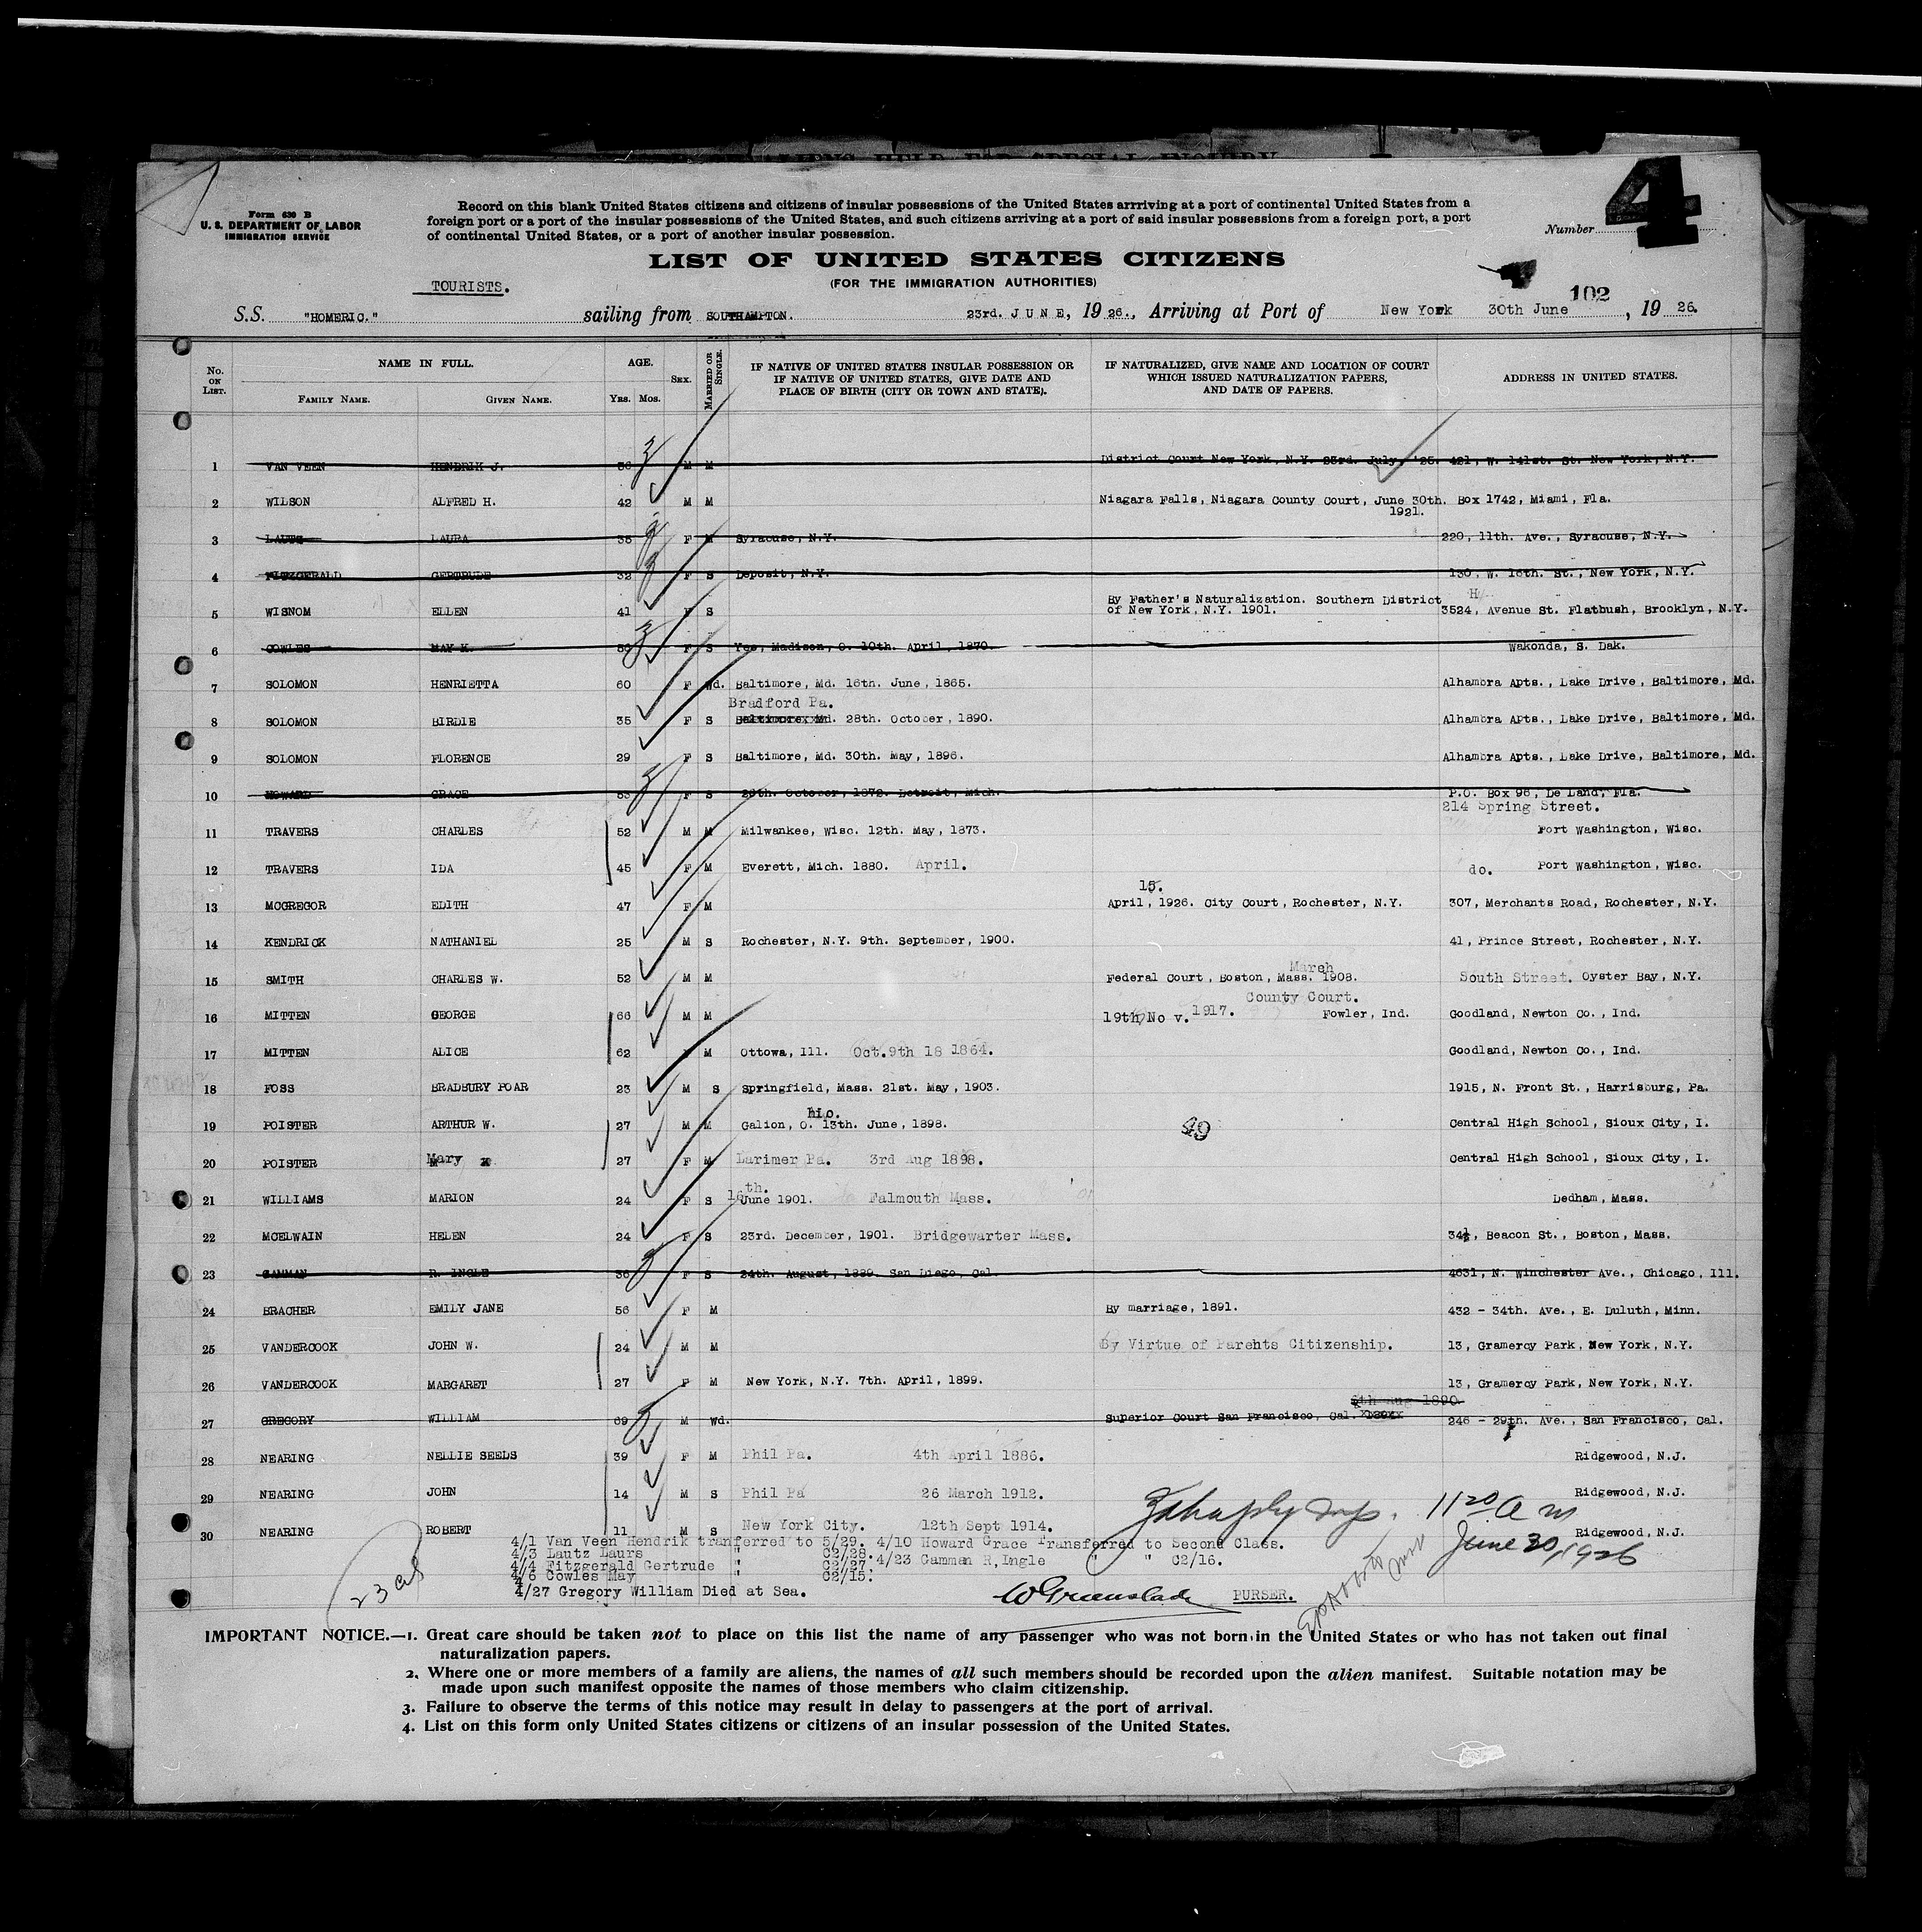 ALIENS HELD FOR SPECIAL INQUIRY
4
Form 630 B
U. S. DEPARTMENT OF LABOR
IMMIGRATION SERVICE
Record on this blank United States citizens and citizens of insular possessions of the United States arrriving at a port of continental United States from a
foreign port or a port of the insular possessions of the United States, and such citizens arriving at a port of said insular possessions from a foreign port, a port
of continental United States, or a port of another insular possession.
Number
LIST OF UNITED STATES CITIZENS
(FOR THE IMMIGRATION AUTHORITIES)
TOURISTS.
102
S.S. "HOMERIC." sailing from SOUTHAMPTON. 23rd. JUNE, 19 26., Arriving at Port of New York 30th June, 19 26.
No. ON LIST. NAME IN FULL. FAMILY NAME. GIVEN NAME. AGE. YRS. MOS. SEX. MARRIED OR SINGLE. IF NATIVE OF UNITED STATES INSULAR POSSESSION OR IF NATIVE OF UNITED STATES, GIVE DATE AND PLACE OF BIRTH (CITY OR TOWN AND STATE). IF NATURALIZED, GIVE NAME AND LOCATION OF COURT WHICH ISSUED NATURALIZATION PAPERS, AND DATE OF PAPERS. ADDRESS IN UNITED STATES.
1 VAN VEEN HENDRIK J. 36 M M District Court New York, N.Y. 23rd. July, '25. 421, W. 141st. St. New York, N.Y.
2 WILSON ALFRED H. 42 M M Niagara Falls, Niagara County Court, June 30th. Box 1742, Miami, Fla.
1921.
3 LAUTZ LAURA 35 F M Syracuse, N.Y. 220, 11th. Ave., Syracuse, N.Y.
4 FITZGERALD GERTRUDE 32 F S Deposit, N.Y. 130, W. 16th. St., New York, N.Y.
By Father's Naturalization. Southern District H
5 WISNOM ELLEN 41 F S of New York, N.Y. 1901. 3524, Avenue St. Flatbush, Brooklyn, N.Y.
6 COWLES MAY K. F S Yes, Madison, O. 10th. April, 1870. Wakonda, S. Dak.
7 SOLOMON HENRIETTA 60 F Wd. Baltimore, Md. 16th. June, 1865. Alhambra Apts., Lake Drive, Baltimore, Md.
Bradford Pa.
8 SOLOMON BIRDIE 35 F S Baltimore Md. 28th. October, 1890. Alhambra Apts., Lake Drive, Baltimore, Md.
9 SOLOMON FLORENCE 29 F S Baltimore, Md. 30th. May, 1896. Alhambra Apts., Lake Drive, Baltimore, Md.
10 HOWARD GRACE 53 F S 26th. October, 1872. Detroit, Mich. P.O. Box 96, De Land, Fla.
214 Spring Street.
11 TRAVERS CHARLES 52 M M Milwankee, Wisc. 12th. May, 1873. Port Washington, Wisc.
12 TRAVERS IDA 45 F M Everett, Mich. 1880. April. do. Port Washington, Wisc.
15.
13 MCGREGOR EDITH 47 F M April, 1926. City Court, Rochester, N.Y. 307, Merchants Road, Rochester, N.Y.
14 KENDRICK NATHANIEL 25 M S Rochester, N.Y. 9th. September, 1900. 41, Prince Street, Rochester, N.Y.
March
15 SMITH CHARLES W. 52 M M Federal Court, Boston, Mass. 1908. South Street. Oyster Bay, N.Y.
County Court.
16 MITTEN GEORGE 66 M M 19th No v. 1917. Fowler, Ind. Goodland, Newton Co., Ind.
17 MITTEN ALICE 62 M Ottowa, Ill. Oct.9th 18 1864. Goodland, Newton Co., Ind.
18 FOSS BRADBURY POAR 23 M S Springfield, Mass. 21st. May, 1903. 1915, N. Front St., Harrisburg, Pa.
hio.
19 POISTER ARTHUR W. 27 M M Galion, O. 13th. June, 1898. 49 Central High School, Sioux City, I.
20 POISTER Mary 27 F M Larimer Pa. 3rd Aug 1898. Central High School, Sioux City, I.
16th.
21 WILLIAMS MARION 24 F S June 1901. Falmouth Mass. Dedham, Mass.
22 MCELWAIN HELEN 24 F S 23rd. December, 1901. Bridgewarter Mass. 34½, Beacon St., Boston, Mass.
23 GAMMAN R. INGLE 36 F S 24th. August, 1889. San Diego, Cal. 4631, N. Winchester Ave., Chicago, Ill.
24 BRACHER EMILY JANE 56 F M By marriage, 1891. 432 - 34th. Ave., E. Duluth, Minn.
25 VANDERCOOK JOHN W. 24 M M By Virtue of Parehts Citizenship. 13, Gramercy Park, New York, N.Y.
26 VANDERCOOK MARGARET 27 F M New York, N.Y. 7th. April, 1899. 13, Gramercy Park, New York, N.Y.
6th Aug 1890
27 GREGORY WILLIAM 69 M Wd. Superior Court San Francisco, Cal. 246 - 29th. Ave., San Francisco, Cal.
28 NEARING NELLIE SEEDS 39 F M Phil Pa. 4th April 1886. Ridgewood, N.J.
29 NEARING JOHN 14 M S Phil Pa 26 March 1912. Ridgewood, N.J.
30 NEARING ROBERT 11 M S New York City. 12th Sept 1914. Ridgewood, N.J.
11 20 A m
June 30, 1926
4/1 Van Veen Hendrik tranferred to 5/29. 4/10 Howard Grace Transferred to Second Class.
4/3 Lautz Laurs " C2/28. 4/23 Gamman R,Ingle " " C2/16.
4/4 Fitzgerald Gertrude " C2/27
4/6 Cowles May " C2/15.
4/27 Gregory William Died at Sea.
W Greenslade PURSER.
IMPORTANT NOTICE.—1. Great care should be taken not to place on this list the name of any passenger who was not born in the United States or who has not taken out final
naturalization papers.
2. Where one or more members of a family are aliens, the names of all such members should be recorded upon the alien manifest. Suitable notation may be
made upon such manifest opposite the names of those members who claim citizenship.
3. Failure to observe the terms of this notice may result in delay to passengers at the port of arrival.
4. List on this form only United States citizens or citizens of an insular possession of the United States.